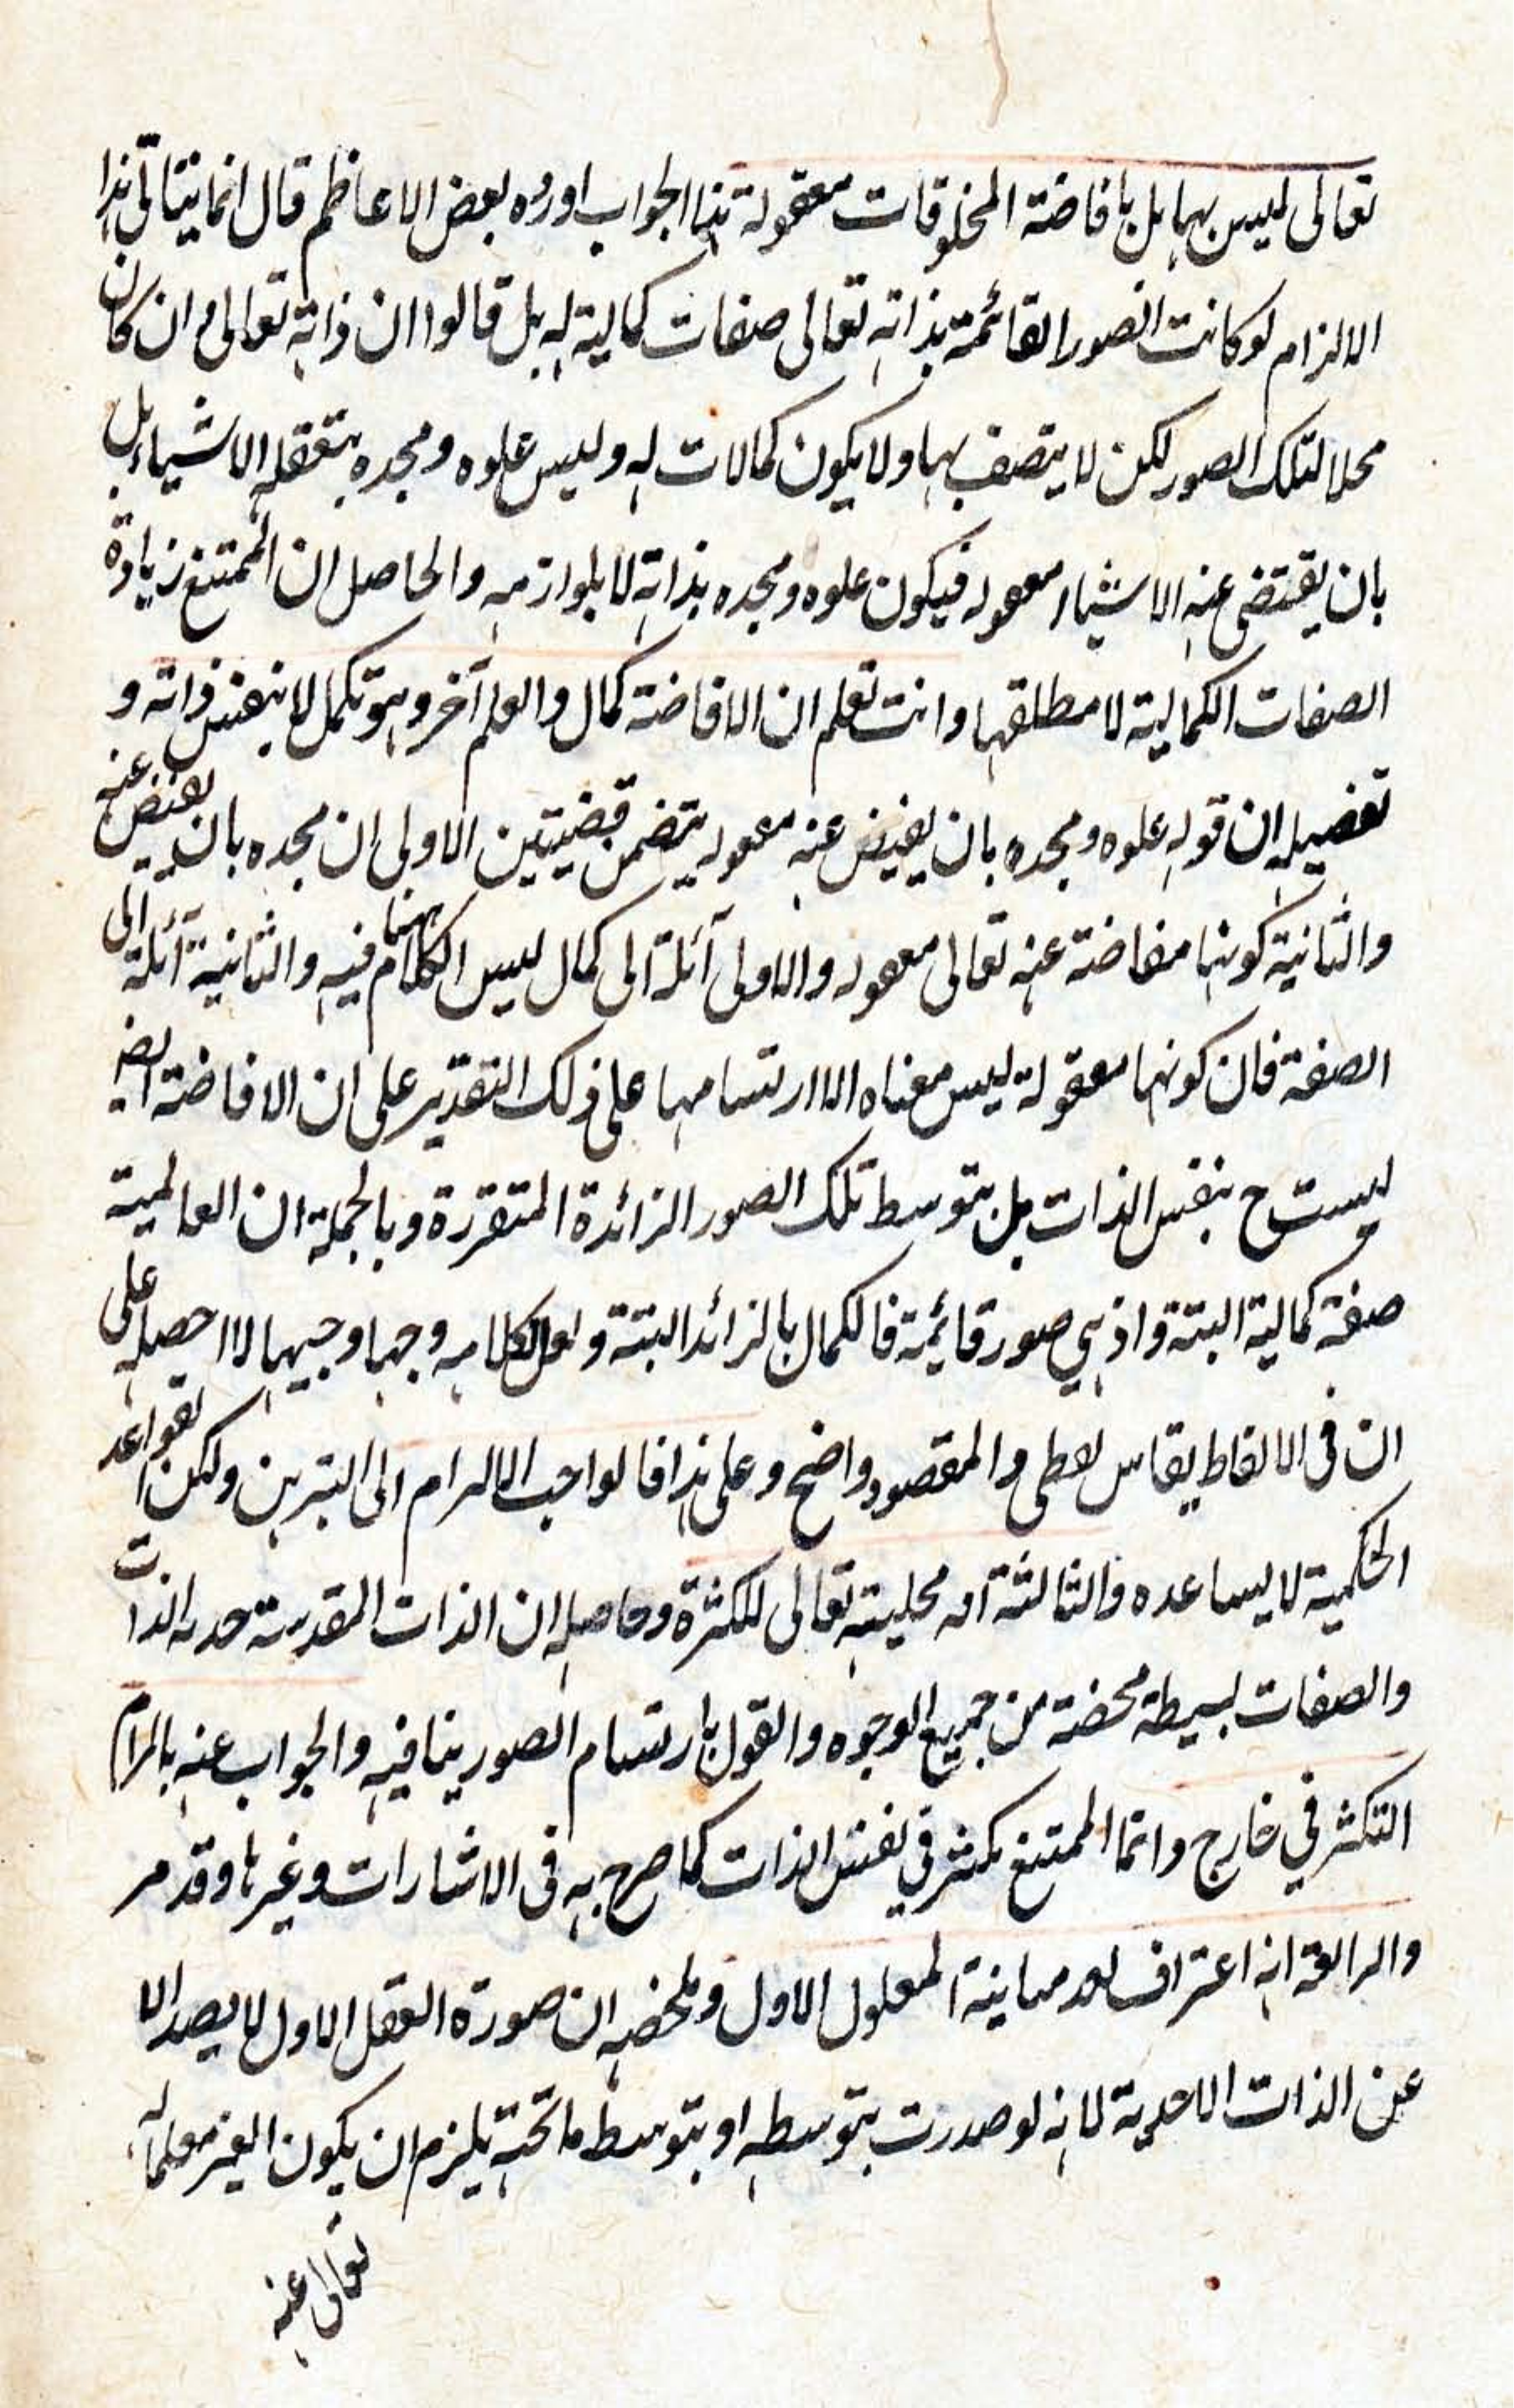 تعالى ليس بها بل بافاضة المخلوقات معقولة هذا الجواب اورده بعض الاعاظم قال انما يتأتى هذا
الالزام لو كانت الصور القائمة بذاته تعالى صفات كمالية له بل قالوا ان ذاته تعالى وان كان
محلا لتلك الصور لكن لا يتصف بها ولا يكون كمالات له وليس علوه ومجده بتعقله الاشياء بل
بان يقتضى عنه الاشياء معقوله فيكون علوه ومجده بذاته لا بلوازمه والحاصل ان الممتنع زيادة
الصفات الكمالية لا مطلقها وانت تعلم ان الافاضة كمال والعلم آخر وهو تكمل لا بنفس ذاته و
تفصيله ان قوله علوه ومجده بان يفيض عنه معقوله يتضمن قضيتين الاولى ان مجده بان يفيض عنه
والثانية كونها مفاضة عنه تعالى معقوله والاولى آئلة الى كمال ليس الكلام ههنا فيه والثانية آئلة الى
الصفة فان كونها معقولة ليس معناه الا ارتسامها على ذلك التقدير على ان الافاضة ايضا
ليست ح بنفس الذات بل بتوسط تلك الصور الزائدة المتقررة وبالجملة ان العالمية
صفة كمالية البتة واذ هي صور قائمة فالكمال بالزائد البتة ولعل لكلامه وجها وجيها لا احصله على
ان فى الالفاظ يقاس لفظى والمقصود واضح وعلى هذا فالواجب الالزام الى التبرين ولكن القواعد
الحكمية لا يساعده والثالثة انه محلية تعالى للكثرة وحاصله ان الذات المقدسة الذات
والصفات بسيطة محضة من جميع الوجوه والقول بارتسام الصور ينافيه والجواب عنه بالزام
التكثر في خارج وانما الممتنع تكثر في نفس الذات كما صرح به فى الاشارات وغيرها وقد مر
والرابعة انه اعتراف بعدم مباينة المعلول الاول وملخصه ان صورة العقل الاول لا يصدر الا
عن الذات الاحدية لانه لو صدرت بتوسطه او بتوسط ما تحته يلزم ان يكون الغير معلما له
تعالى عنه